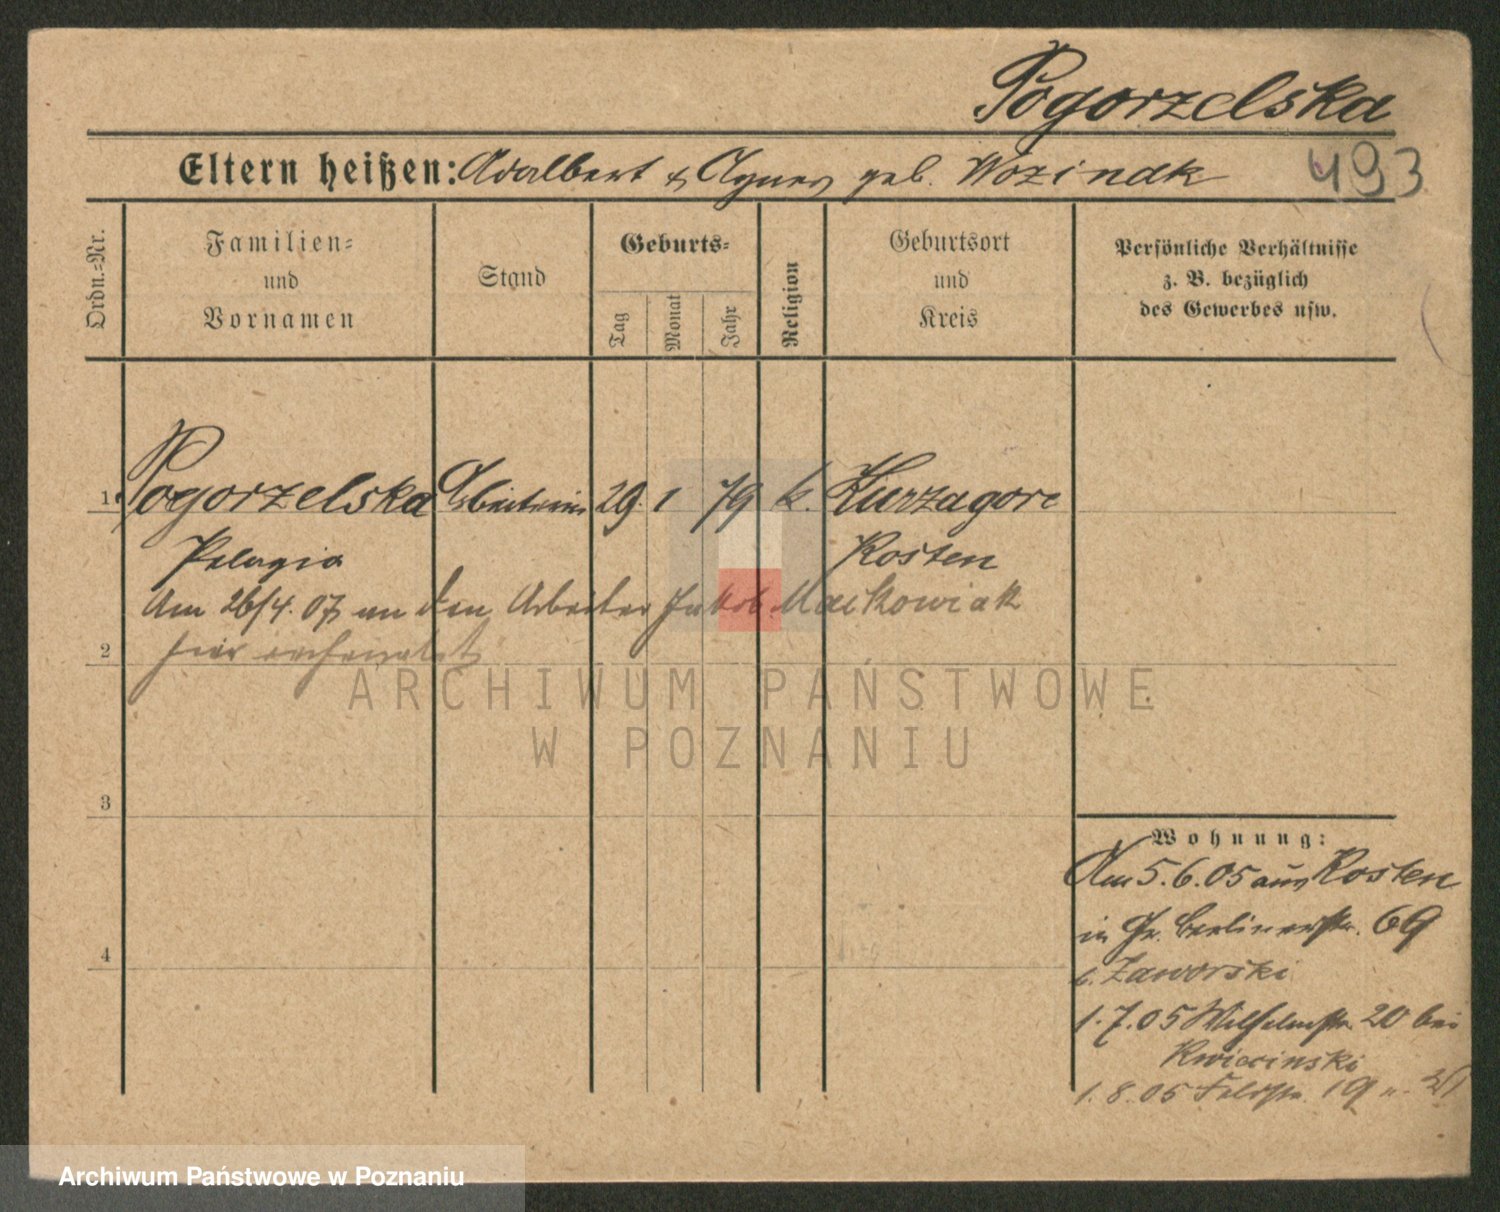 Pogorzelska
Eltern heißen: Adalbert & Agnes geb. Wozindk
493
Ordn.=Nr.
Familien=
und
Vornamen
Stand
Geburts=
Tag
Monat
Jahr
Religion
Geburtsort
und
Kreis
Persönliche Verhältnisse
z. B. bezüglich
des Gewerbes usw.
1. Pogorzelska Arbeiterin 29. 1 79 k. Kurzagora
Pelagia Kosten
Am 26/4. 07 an den Arbeiter Jakob Maćkowiak
hier verheiratet
2
3
4
Wohnung:
Am 5.6.05 aus Kosten
in Gr. Berlinerstr. 69
b. Zaworski
1.7.05 Wilhelmstr. 20 bei
Kwiecinski
1.8.05 Feldstr. 19
ARCHIWUM PAŃSTWOWE
W POZNANIU
Archiwum Państwowe w Poznaniu